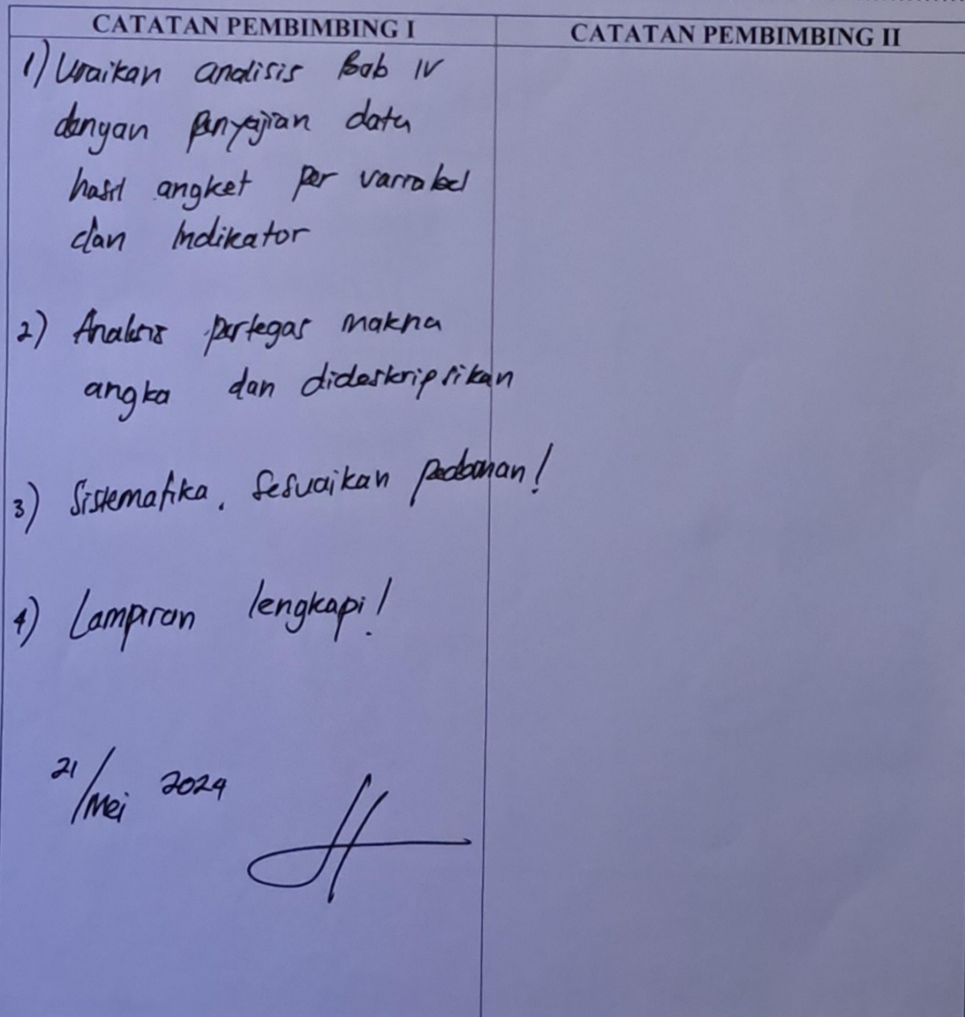 CATATAN PEMBIMBING I
CATATAN PEMBIMBING II
1) Uraikan analisis Bab IV
dengan penyajian data
hasil angket per variabel
dan Indikator
2) Analisis pertegas makna
angka dan dideskripsikan
3) Sistematika, Sesuaikan pedoman!
4) Lampiran lengkapi!
21/Mei 2024